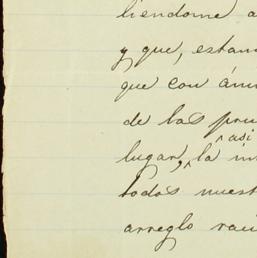 liendome a
y que, estan
que con áni
de las pru
asi
lugar, la in
todos nuest
arreglo rai